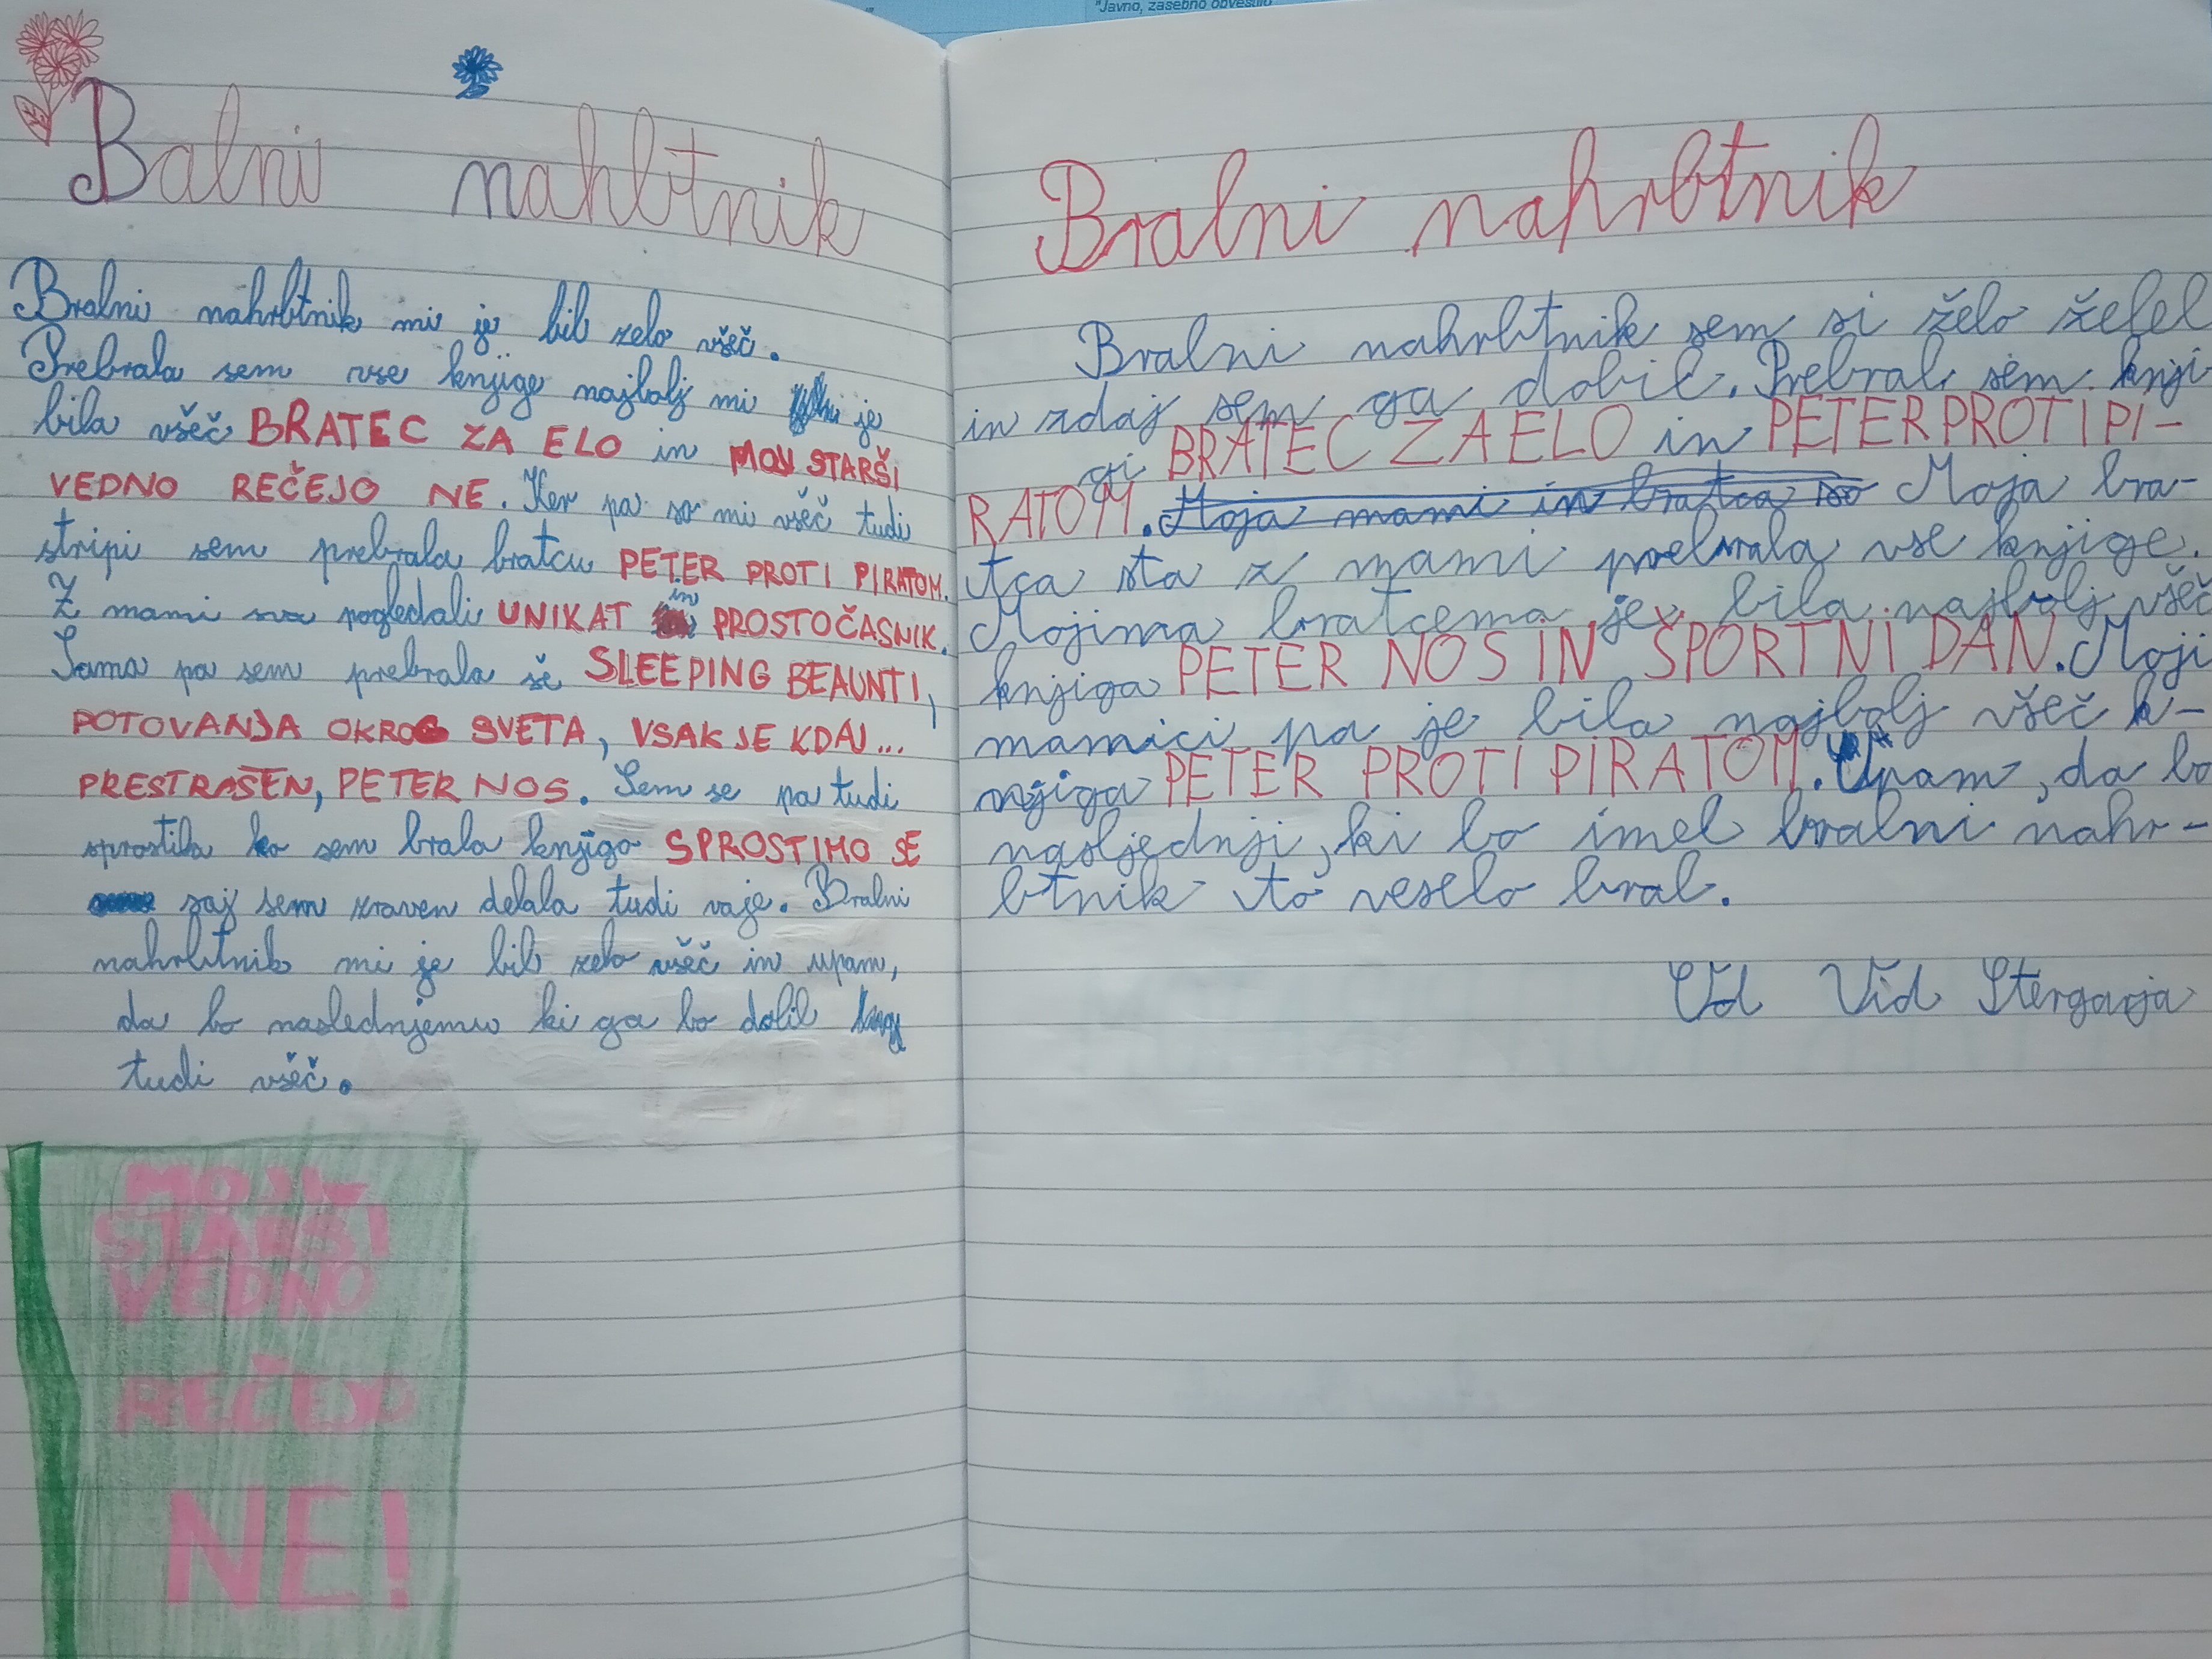 "Javno, zasebno obvestilo
Balni nahlbtnik
Bralni nahrbtnik mi je bil zelo všeč.
Prebrala sem vse knjige najbolj mi je
bila všeč BRATEC ZA ELO in MOJI STARŠI
VEDNO REČEJO NE. Ker pa so mi všeč tudi
stripi sem prebrala bratcu PETER PROTI PIRATOM.
Z mami sva pogledali UNIKAT in PROSTOČASNIK.
Sama pa sem prebrala še SLEEPING BEAUNTI,
POTOVANJA OKROG SVETA, VSAK JE KDAJ...
PRESTRAŠEN, PETER NOS. Sem se pa tudi
sprostila ko sem brala knjigo SPROSTIMO SE
saj sem zraven delala tudi vaje. Bralni
nahrbtnik mi je bil zelo všeč in upam,
da bo naslednjemu ki ga bo dobil
tudi všeč.
MOJI
STARŠI
VEDNO
REČEJO
NE!
Bralni nahrbtnik
Bralni nahrbtnik sem si želo želel
in zdaj sem ga dobil. Prebral sem knji-
gi BRATEC ZA ELO in PETER PROTI PI-
RATOM. Moja mami in bratca so Moja bra-
tca sta z mami prebrala vse knjige.
Mojima bratcema je bila najbolj všeč
knjiga PETER NOS IN ŠPORTNI DAN. Moji
mamici pa je bila najbolj všeč k-
njiga PETER PROTI PIRATOM. Upam, da bo
nasljednji, ki bo imel bralni nahr-
btnik to veselo bral.
Vid Vid Štergarja